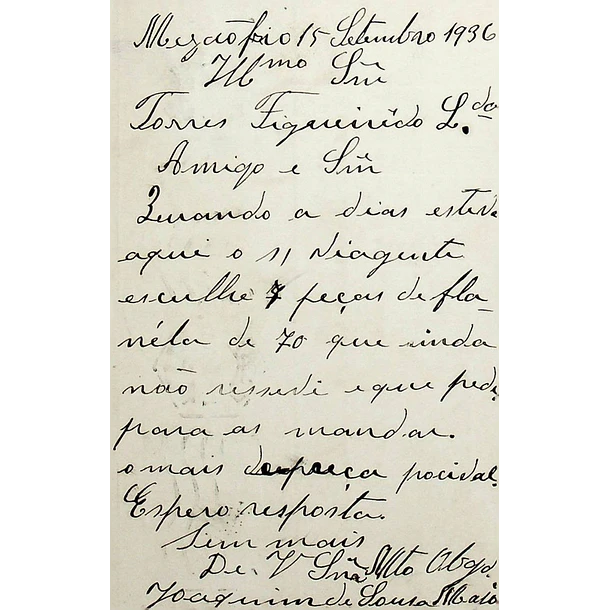 Mezãofrio 15 Setembro 1936
Illmo Snr
Torres Figueirêdo L.da
Amigo e Snr
Quando a dias estive
aqui o s/ Viagente
esculhe 7 peças de fla-
néla de 70 que ainda
não ressevi e que pede
para as mandar.
o mais depreça pocival.
Espero resposta.
Sem mais
De V Snra Mto Obgo
Joaquim de Sousa